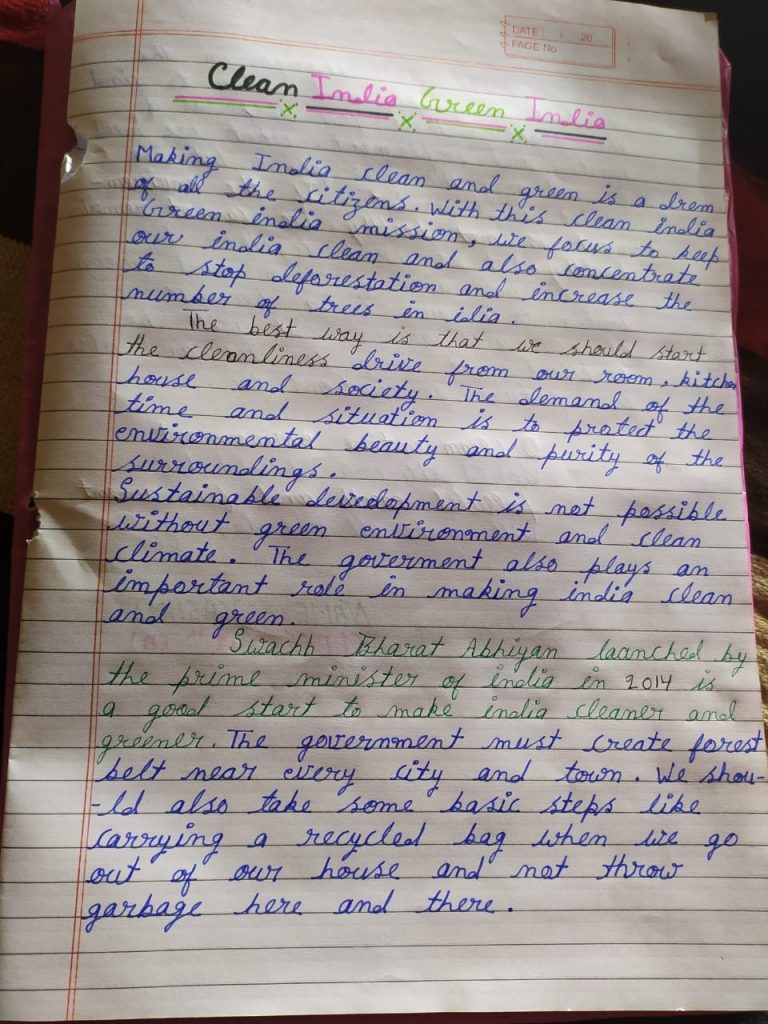 DATE: / 20
PAGE No
Clean India Green India
Making India clean and green is a drem
of all the citizens. With this clean india
Green india mission, we focus to keep
our india clean and also concentrate
to stop deforestation and increase the
number of trees in idia.
The best way is that we should start
the cleanliness drive from our room, kitchen
house and society. The demand of the
time and situation is to protect the
environmental beauty and purity of the
surroundings.
Sustainable development is not possible
without green environment and clean
climate. The goverment also plays an
important role in making india clean
and green.
Swachh Bharat Abhiyan laanched by
the prime minister of india in 2014 is
a good start to make india cleaner and
greener. The government must create forest
belt near every city and town. We shou-
-ld also take some basic steps like
carrying a recycled bag when we go
out of our house and not throw
garbage here and there.